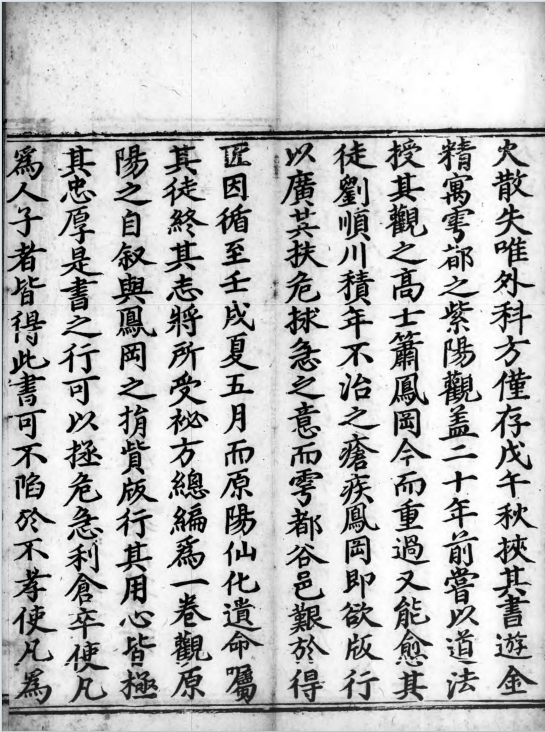 火散失唯外科方僅存戊午秋挾其書遊金
精寓雩都之紫陽觀盖二十年前嘗以道法
授其觀之高士簫鳳岡今而重過又能愈其
徒劉順川積年不治之瘡疾鳳岡即欲版行
以廣其扶危捄急之意而雩都谷邑艱於得
匠因循至壬戌夏五月而原陽仙化遺命囑
其徒終其志將所受祕方總編爲一卷觀原
陽之自叙與鳳岡之捐貲版行其用心皆極
其忠厚是書之行可以拯危急利倉卒使凡
爲人子者皆得此書可不陷於不孝使凡爲